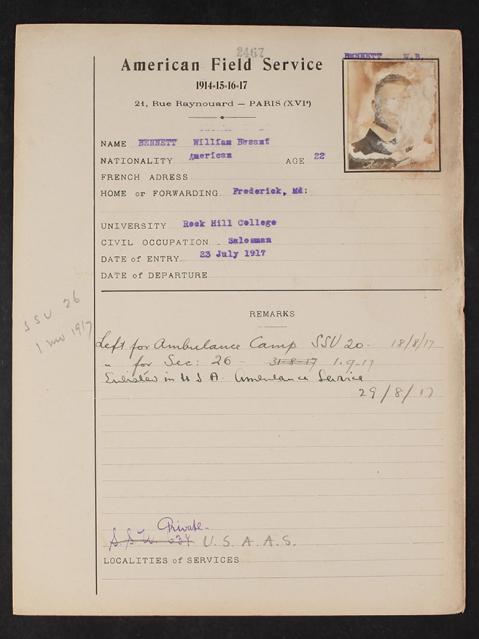 2467
BENNETT W.B.
American Field Service
1914-15-16-17
21, Rue Raynouard — PARIS (XVIe)
NAME BENNETT William Besant
NATIONALITY American AGE 22
FRENCH ADRESS
HOME or FORWARDING. Frederick, Md:
UNIVERSITY Rock Hill College
CIVIL OCCUPATION Salesman
DATE of ENTRY 23 July 1917
DATE of DEPARTURE
REMARKS
SSU 26
1 1917
Left for Ambulance Camp SSU 20 - 18/8/17
" for Sec: 26 - 31-8-17 1-9-17
Enlisted in U S A Ambulance Service
29/8/17
Private
S.S.U. 634 U.S.A.A.S.
LOCALITIES of SERVICES